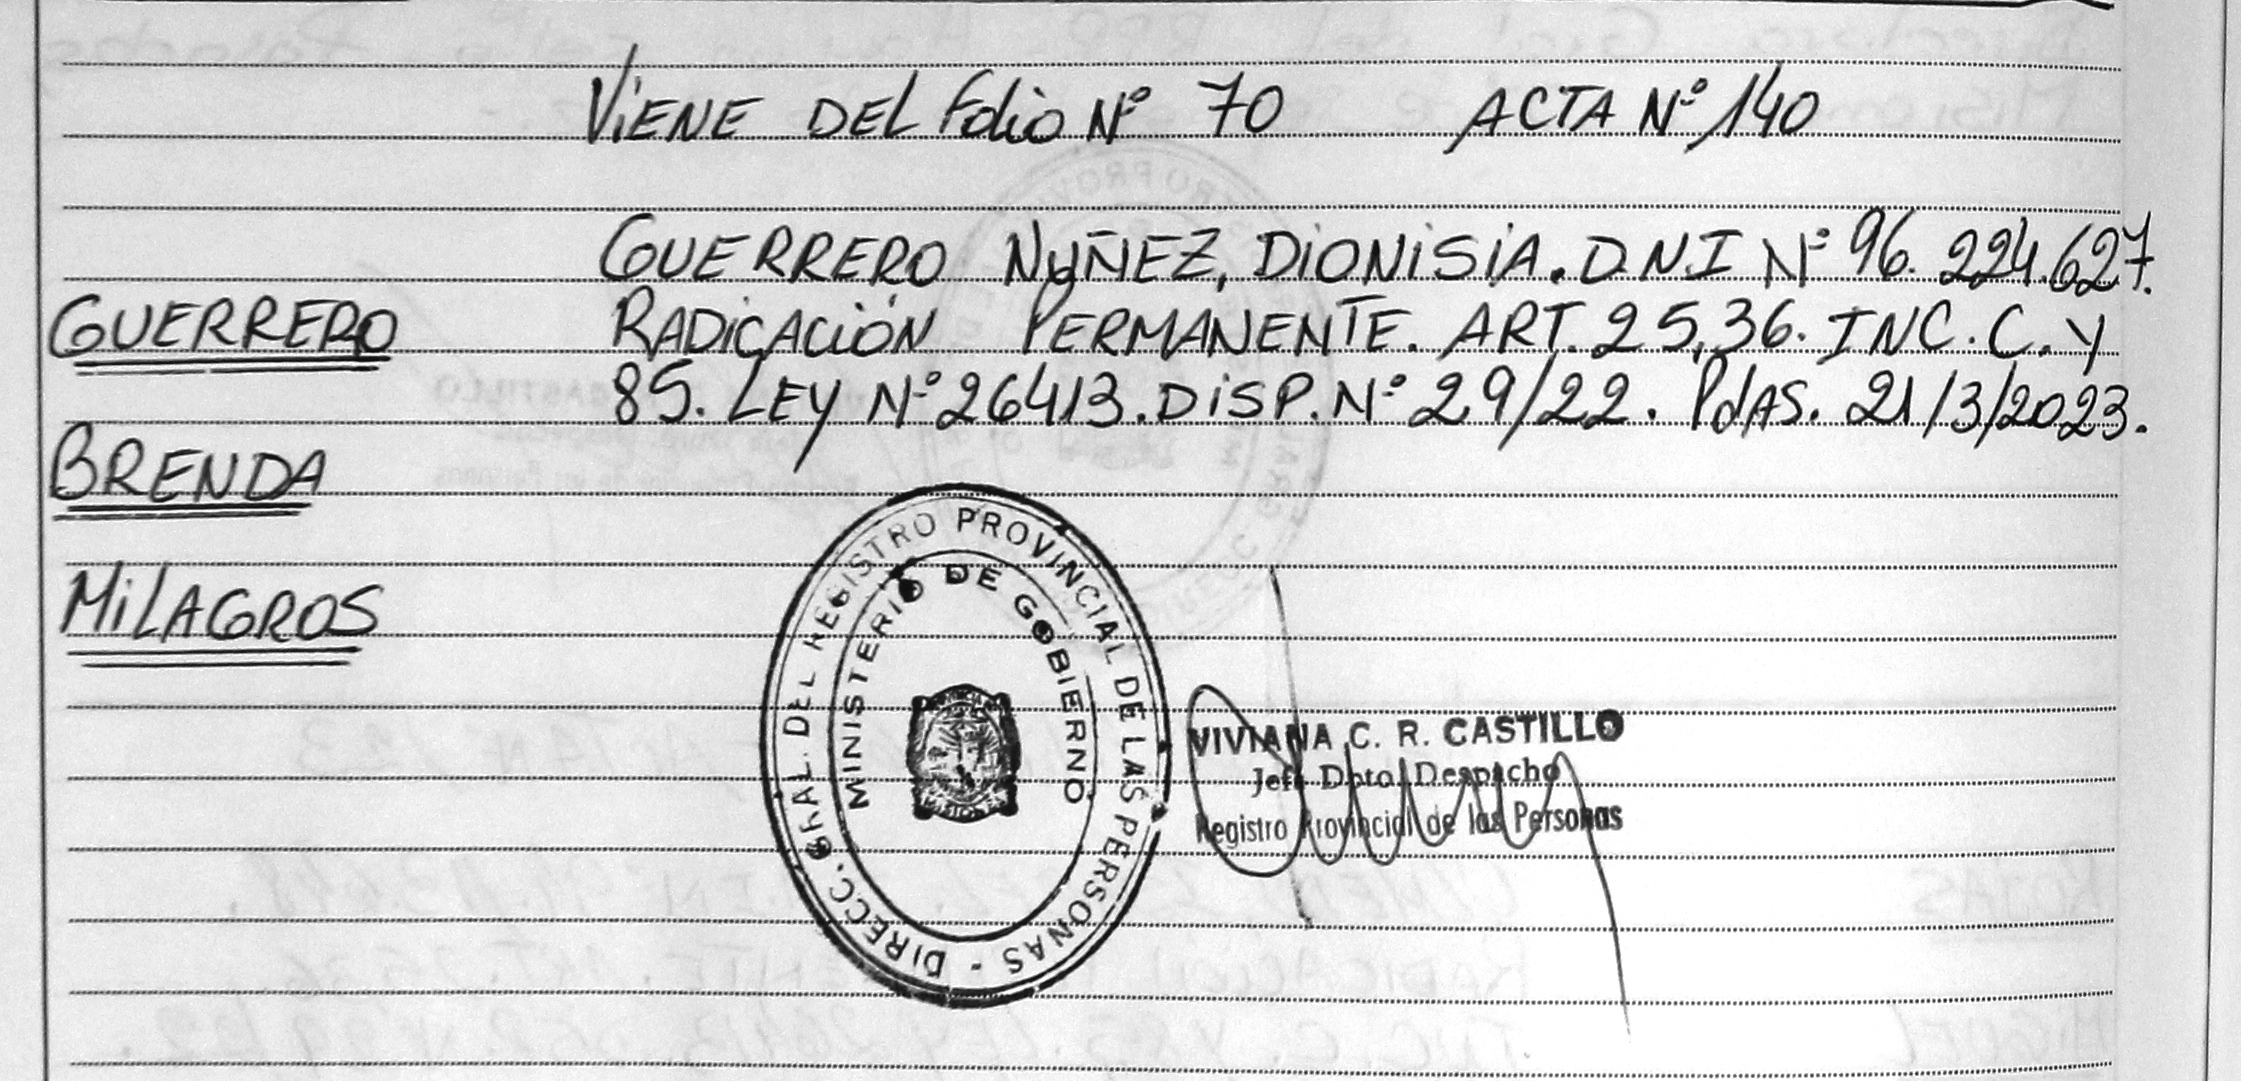 ViENE DEL Folio Nº 70 ACTA Nº 140
GUERRERO NUÑEZ, DiONiSiA. DNI Nº 96.224.627.
GUERRERO
RADiCACiÓN PERMANENTE. ART. 25,36. INC. C. Y
85. LEY Nº 26413. DiSP. Nº 29/22. PdAS. 21/3/2023.
BRENDA
MiLAGROS
DIRECC. GRAL. DEL REGISTRO PROVINCIAL DE LAS PERSONAS -
MINISTERIO DE GOBIERNO
VIVIANA C. R. CASTILLO
Jefe Dpto. Despacho
Registro Provincial de las Personas